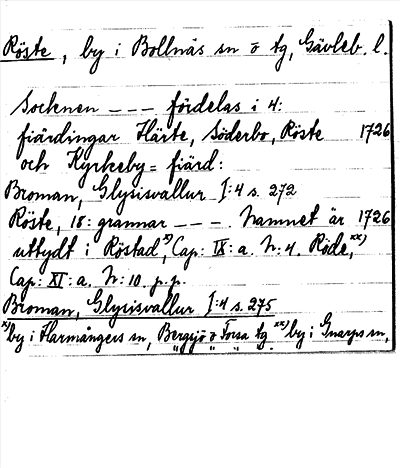 Röste, by i Bollnäs sn o tg, Gävleb. l.
Socknen --- fördelas i 4:
fiärdingar Härte, Söderbo, Röste 1726
och Kyrkeby = fiärd:
Broman, Glysisvallur I:4 s. 272
Röste, 18: grannar ---. Namnet är 1726
uttydt i Röstad,x) Cap: IX: a. N: 4. Röde,xx)
Cap: XI: a. N: 10. p.p.
Broman, Glysisvallur I:4 s. 275
x) by i Harmångers sn, Bergsjö o Forsa tg xx) by i Gnarps sn,
" " " "